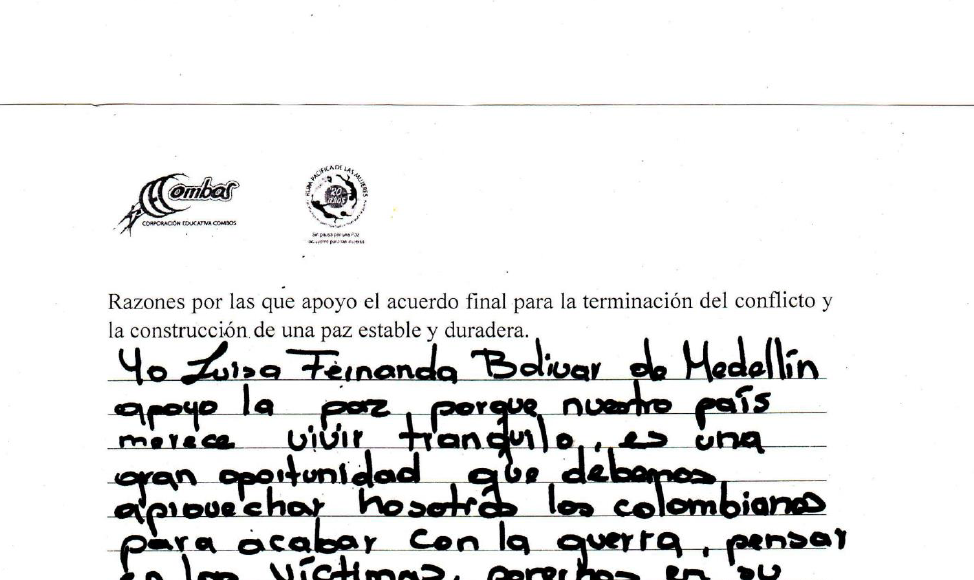 Combos
CORPORACIÓN EDUCATIVA COMBOS
RUTA PACÍFICA DE LAS MUJERES
20 años
Razones por las que apoyo el acuerdo final para la terminación del conflicto y
la construcción de una paz estable y duradera.
Yo Luisa Fernanda Bolivar de Medellín
apoyo la paz, porque nuestro país
merece vivir tranquilo, es una
gran oportunidad que debemos
aprovechar nosotros los colombianos
para acabar con la guerra, pensar
en las víctimas, en su